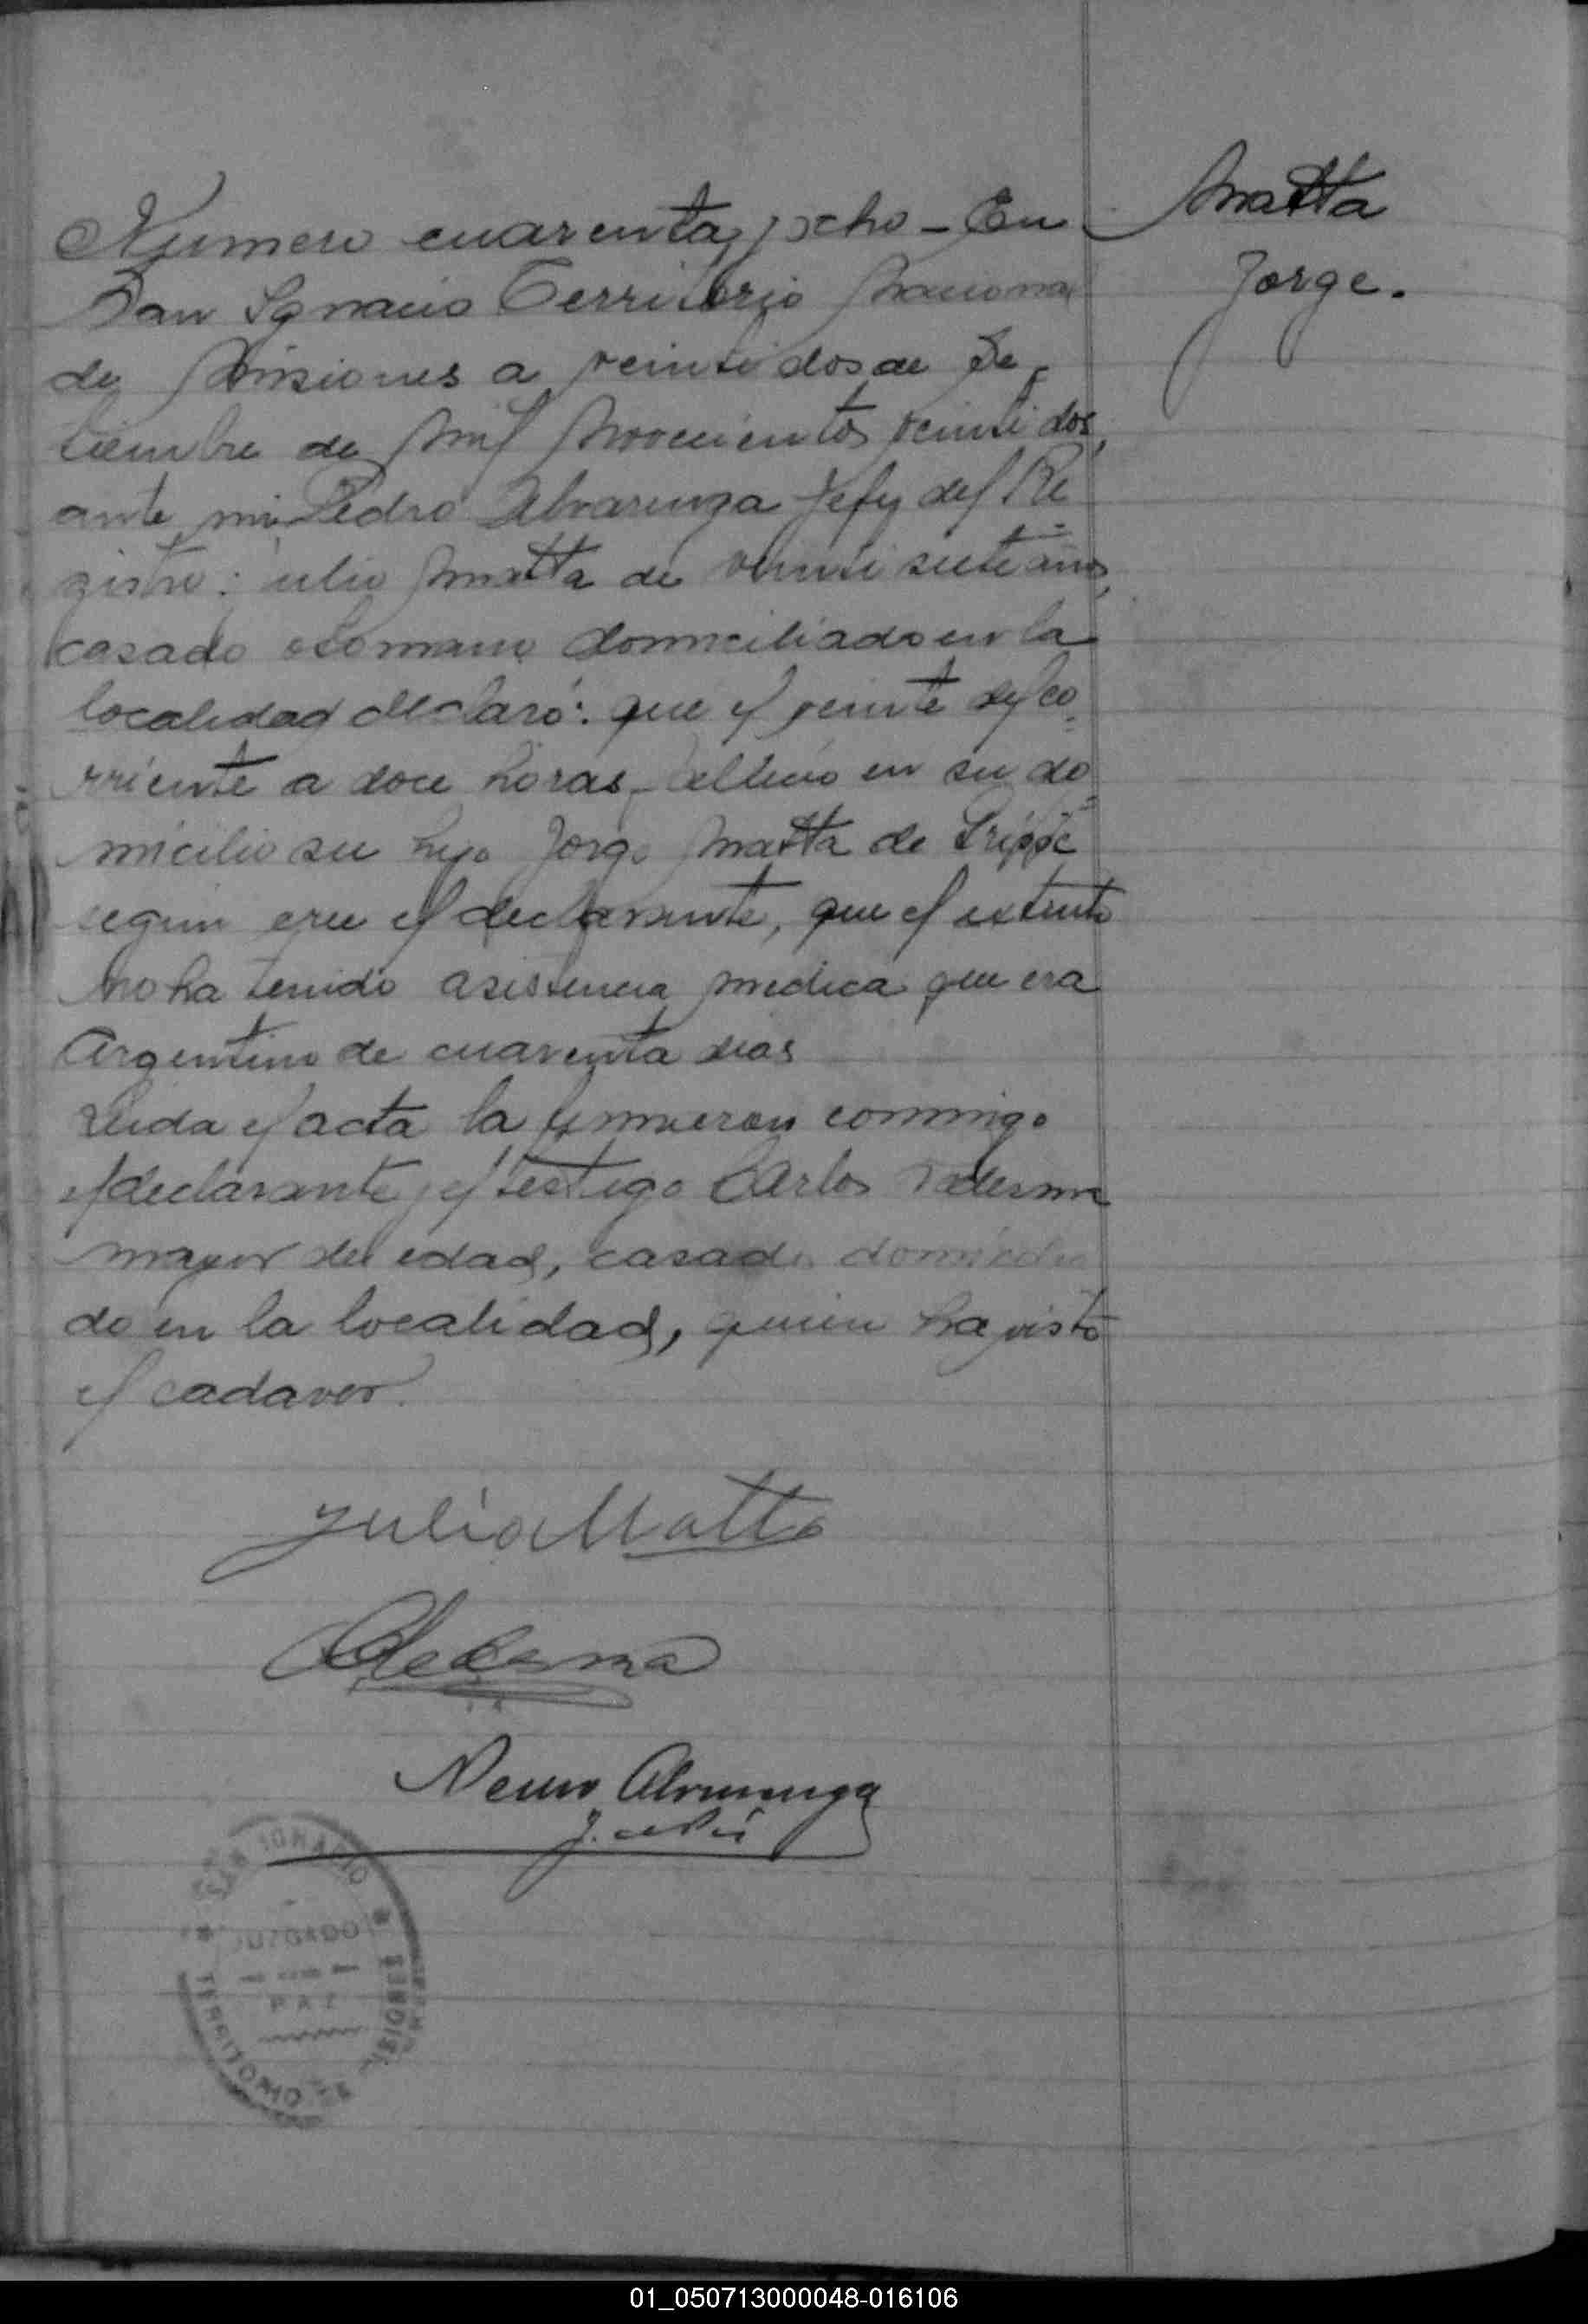 Numero cuarenta y ocho - En
San Ignacio Territorio Nacional
de Misiones a veinti dos de Se
tiembre de Mil Novecientos veinti dos,
ante mi Pedro Alvarenga Jefe del Re
gistro: Julio Matta de veinti siete años,
casado otomano domiciliado en la
localidad declaró: que el veinte del co
rriente a doce horas fallecio en su do
micilio su hijo Jorge Matta de Grippe
segun cree el declarante, que el extinto
No ha tenido asistencia medica que era
Argentino de cuarenta dias
Leida el acta la firmaron conmigo
el declarante y el testigo Carlos Ledesma
mayor de edad, casado domicilia
do en la localidad, quien ha visto
el cadaver.
Matta
Jorge.
Julio Matta
CLedesma
Alvarenga
SAN IGNACIO
JUZGADO
PAZ
TERRITORIO DE MISIONES
01_050713000048-016106